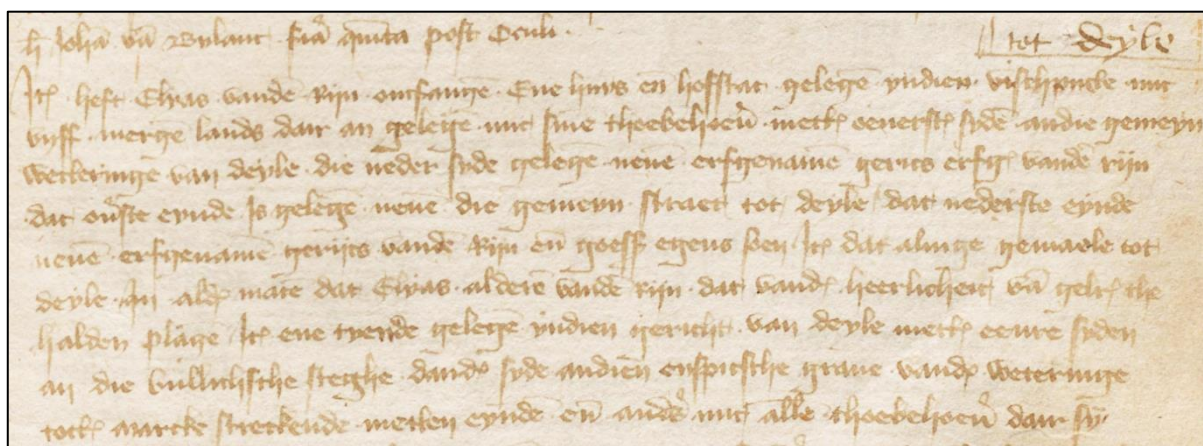 h Johā vā Bylant fīa quīta post Oculi.
tot deyle
Itē heft Elyas vandē Rijn ontfangē Ene huys eñ hofstat gelegē yndien vischpoele mit
vijff mergē lands dair an gelegē mit sinē thoebehoerē metter oeuerste sydē andie gemeyn
weteringe van deyle die neder syde gelegē neuē erfgenamē gerits erfgē vandē rijn
dat ouste eynde Is gelegē neuē die gemeyn straet tot deyle dat nederste eynde
neuē erfgenamē gerijts vandē Rijn eñ goeff egens soen Itē dat alinge gemaele tot
deyle In alder manē dat Elyas alderē vandē rijn dat vander heerlicheit vā gelre the
halden plagē Itē ene tyende gelegē yndien gericht van deyle metter eenrē syden
an die steghe dander syde andien graue vander weteringe
totter marcke streckende metten eyndē eñ ander mit alle thoebehoerē dair sy